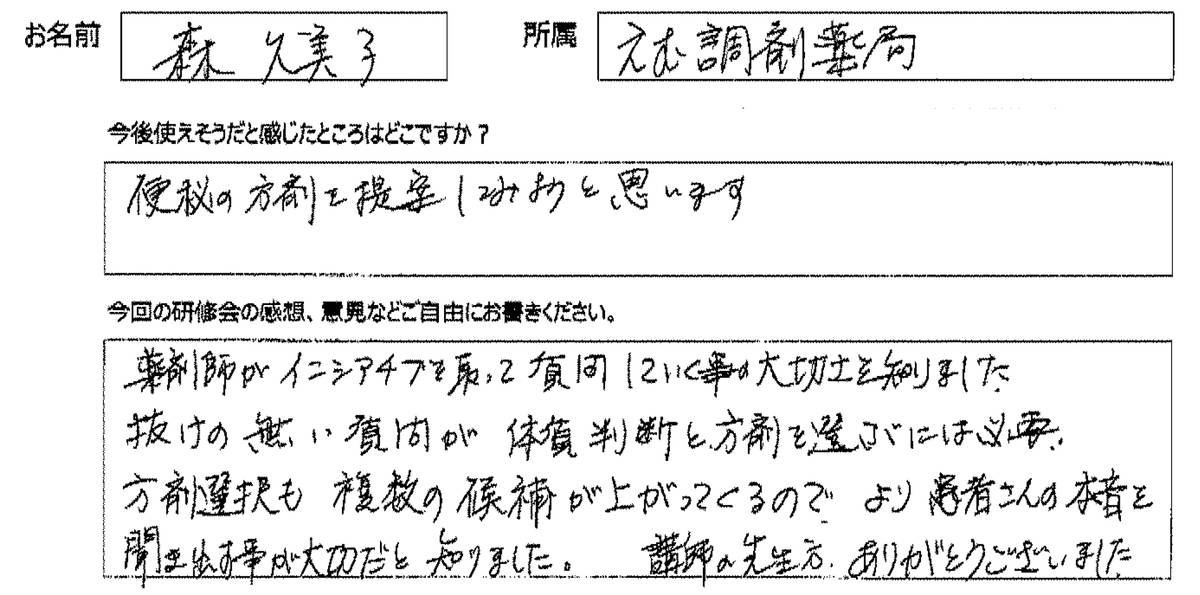 お名前 森 久美子 所属 えむ調剤薬局
今後使えそうだと感じたところはどこですか？
便秘の方剤を提案してみようと思います
今回の研修会の感想、意見などご自由にお書きください。
薬剤師がイニシアチブを取って質問していく事の大切さを知りました
抜けの無い質問が体質判断と、方剤を選ぶには必要、
方剤選択も複数の候補が上がってくるので、より患者さんの本音を
聞き出す事が大切だと知りました。 講師の先生方、ありがとうございました